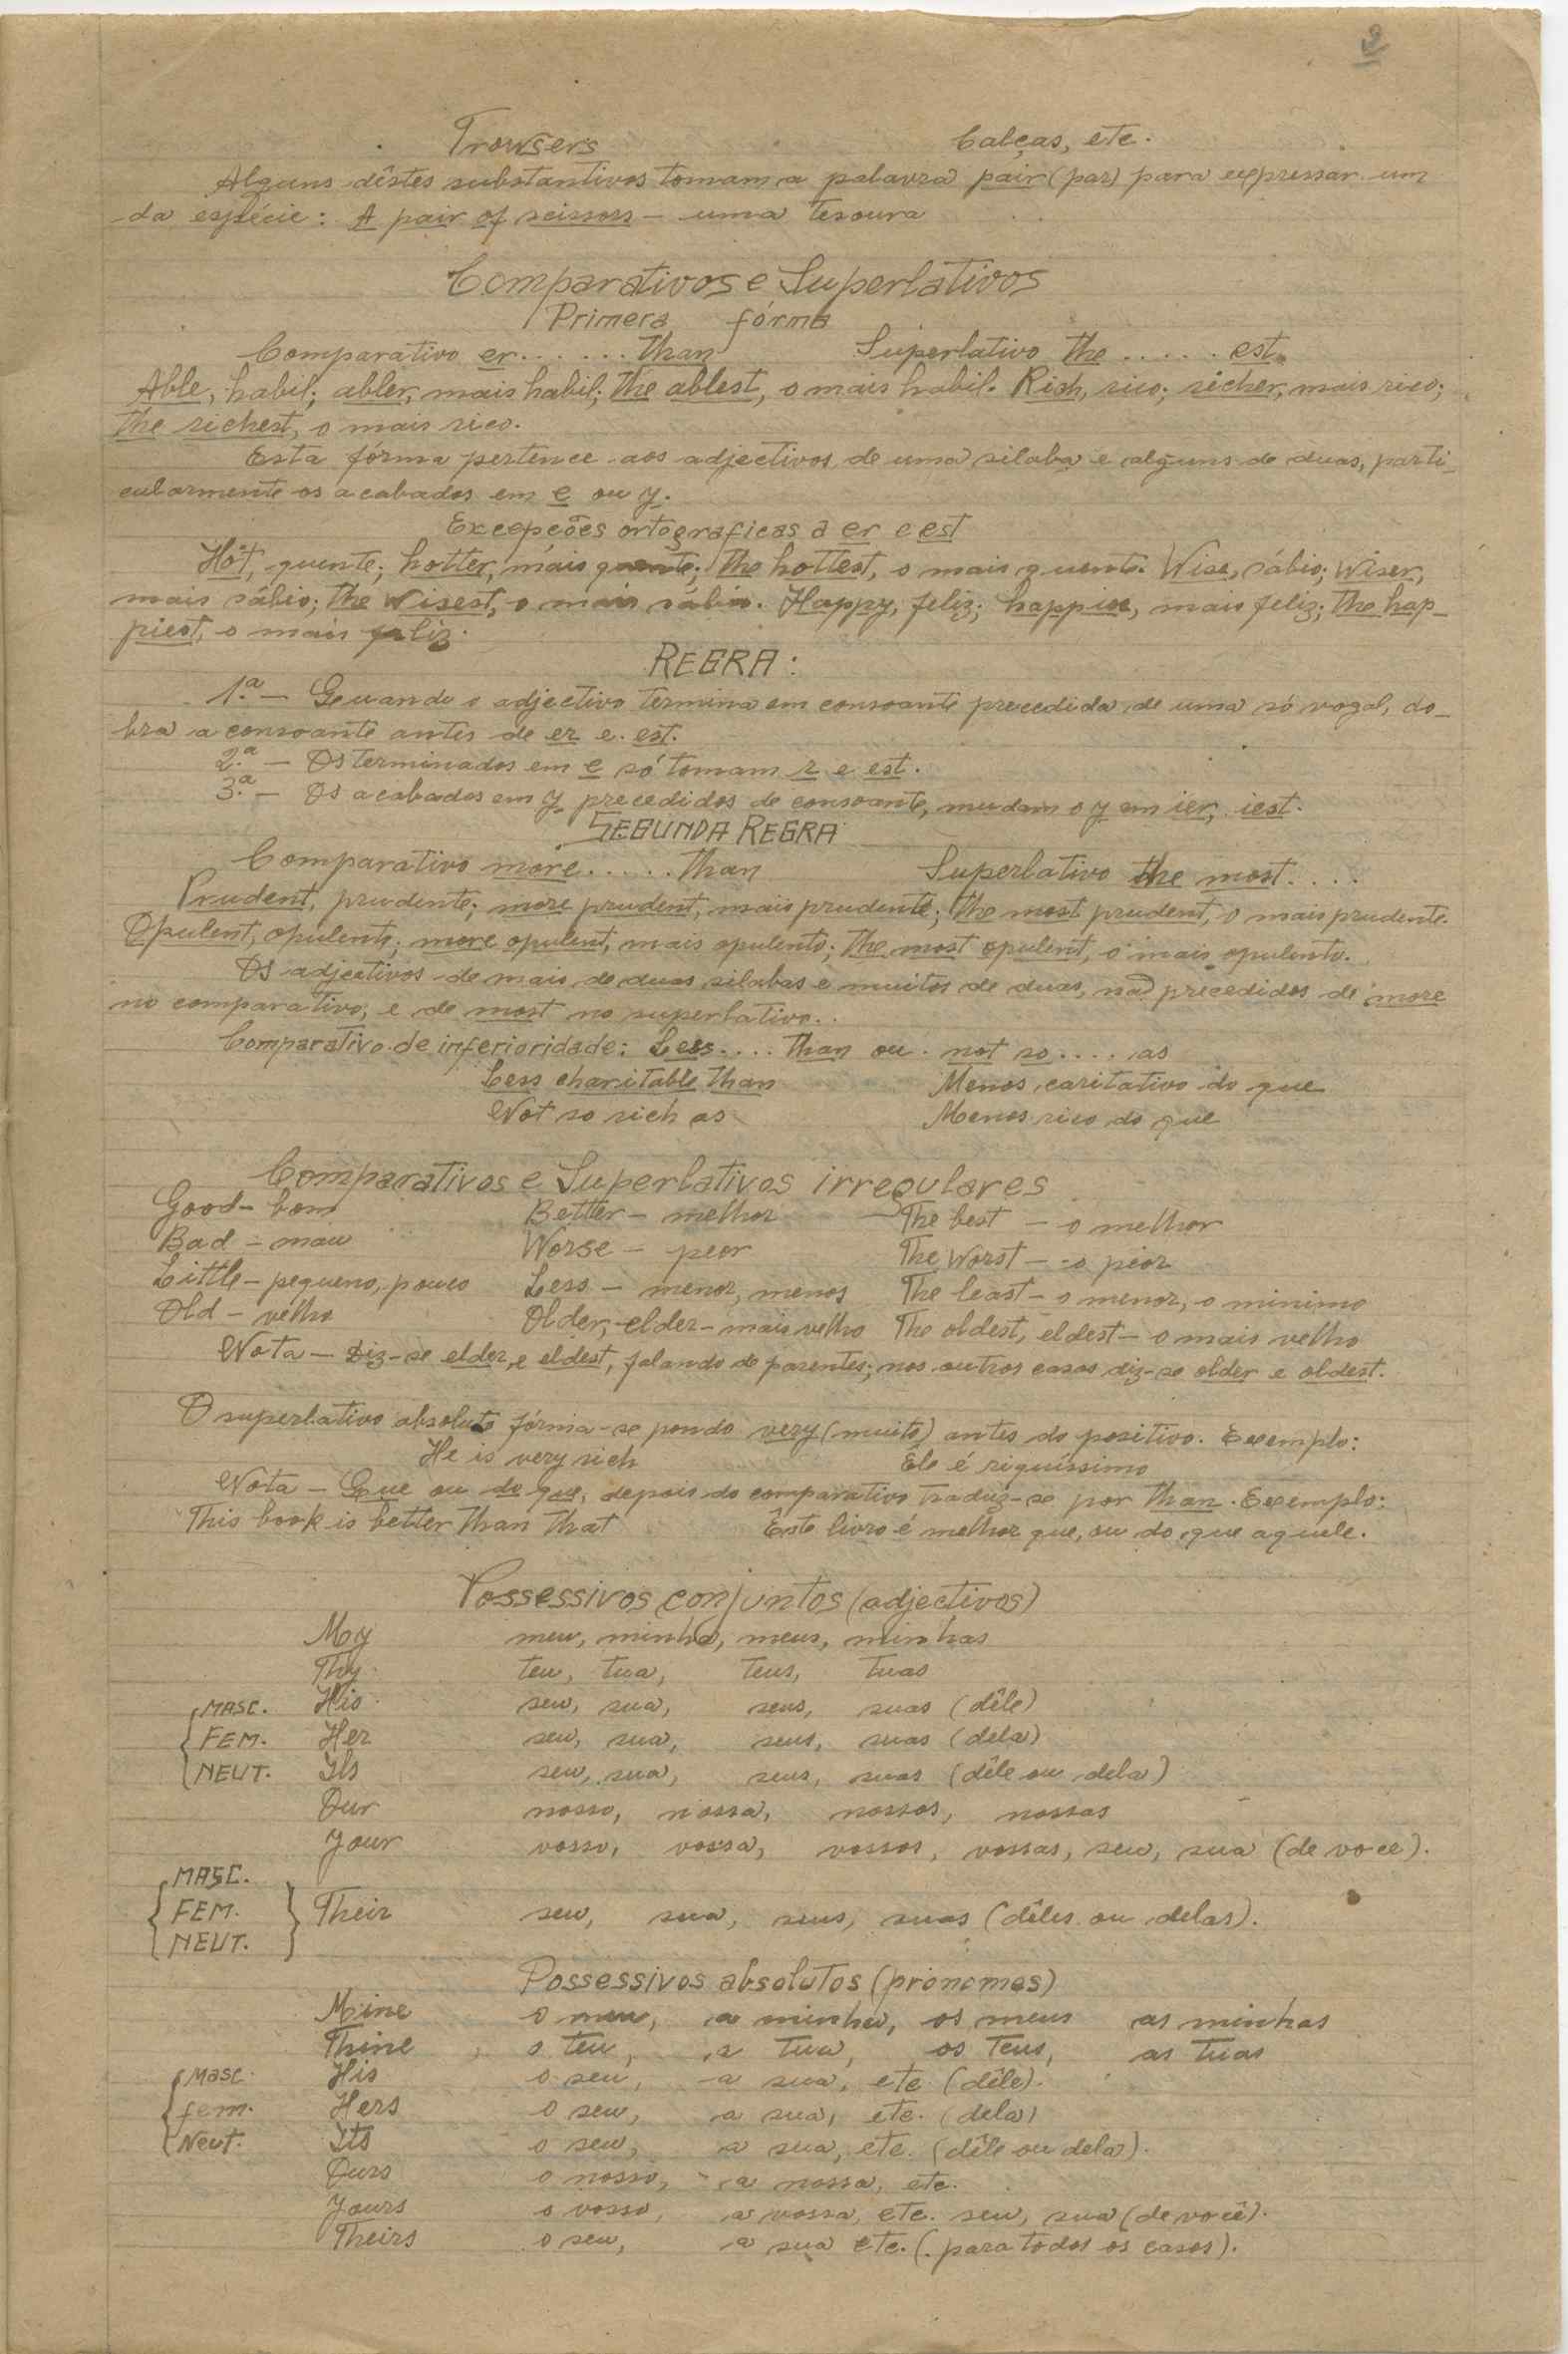 2
Trowsers Calças, etc.
Alguns dêstes substantivos tomam a palavra pair (par) para expressar um
da espécie: A pair of scissors – uma tesoura
Comparativos e Superlativos
Primera fórma
Comparativo er...... than Superlativo the ..... est.
Able, habil; abler, mais habil; the ablest, o mais habil. Rich, rico; richer, mais rico;
the richest, o mais rico.
Esta fórma pertence aos adjectivos de uma silaba e alguns de duas, parti-
cularmente os acabados em e ou y.
Excepções ortograficas a er e est
Hot, quente; hotter, mais quente; the hottest, o mais quente. Wise, sábio; wiser,
mais sábio; the wisest, o mais sábio. Happy, feliz; happier, mais feliz; the hap-
piest, o mais feliz.
REGRA:
1.ª – Quando o adjectivo termina em consoante precedida de uma só vogal, do-
bra a consoante antes de er e est.
2.ª – Os terminados em e só tomam r e est.
3.ª – Os acabados em y precedidos de consoante, mudam o y em ier, iest.
SEGUNDA REGRA
Comparativo more..... than Superlativo the most....
Prudent, prudente; more prudent, mais prudente; the most prudent, o mais prudente.
Opulent, opulento; more opulent, mais opulento; the most opulent, o mais opulento.
Os adjectivos de mais de duas silabas e muitos de duas, são precedidos de more
no comparativo, e de most no superlativo.
Comparativo de inferioridade: Less.... than ou not so.... as
Less charitable than Menos caritativo do que
Not so rich as Menos rico do que
Comparativos e Superlativos irregulares
Good – bom Better – melhor The best – o melhor
Bad – mau Worse – peor The worst – o pior
Little – pequeno, pouco Less – menor, menos The least – o menor, o minimo
Old – velho Older, elder – mais velho The oldest, eldest – o mais velho
Nota – Diz-se elder e eldest, falando de parentes; nos outros casos diz-se older e oldest.
O superlativo absoluto fórma-se pondo very (muito) antes do positivo. Exemplo:
He is very rich Ele é riquissimo
Nota – Que ou do que, depois do comparativo traduz-se por than. Exemplo:
This book is better than that Êste livro é melhor que, ou do que aquele.
Possessivos conjuntos (adjectivos)
My meu, minha, meus, minhas
Thy teu, tua, teus, tuas
MASC. His seu, sua, seus, suas (dêle)
FEM. Her seu, sua, seus, suas (dela)
NEUT. Its seu, sua, seus, suas (dêle ou dela)
Our nosso, nossa, nossos, nossas
Your vosso, vossa, vossos, vossas, seu, sua (de voce).
MASC.
FEM. Their seu, sua, seus, suas (dêles ou delas).
NEUT.
Possessivos absolutos (pronomes)
Mine o meu, a minha, os meus as minhas
Thine o teu, a tua, os teus, as tuas
Masc. His o seu, a sua, etc. (dêle).
fem. Hers o seu, a sua, etc. (dela)
Neut. Its o seu, a sua, etc. (dêle ou dela).
Ours o nosso, a nossa, etc.
Yours o vosso, a vossa, etc. seu, sua (de você).
Theirs o seu, a sua etc. (para todos os casos).